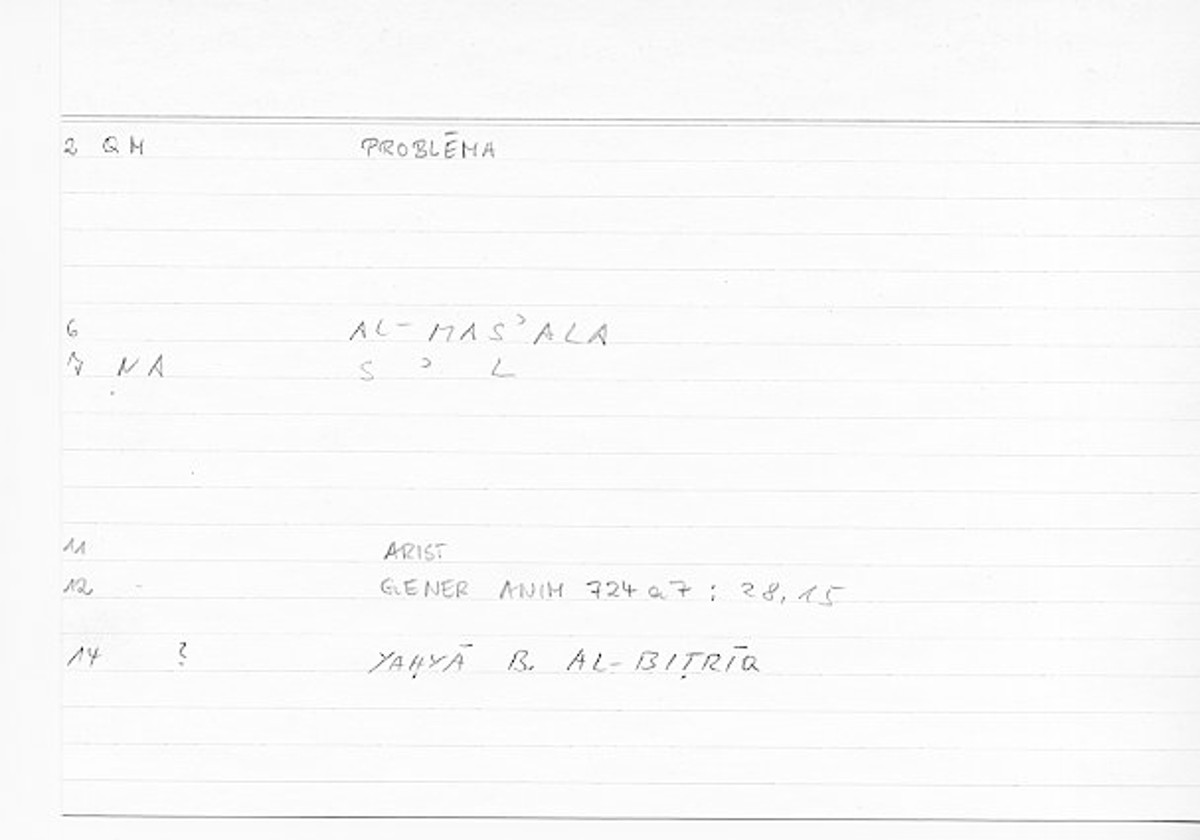 2 QM PROBLĒMA
6 AL-MASʾALA
7 NA S ʾ L
11 ARIST
12 GENER ANIM 724a7 : 28,15
14 ? YAḤYĀ B. AL-BIṬRĪQ